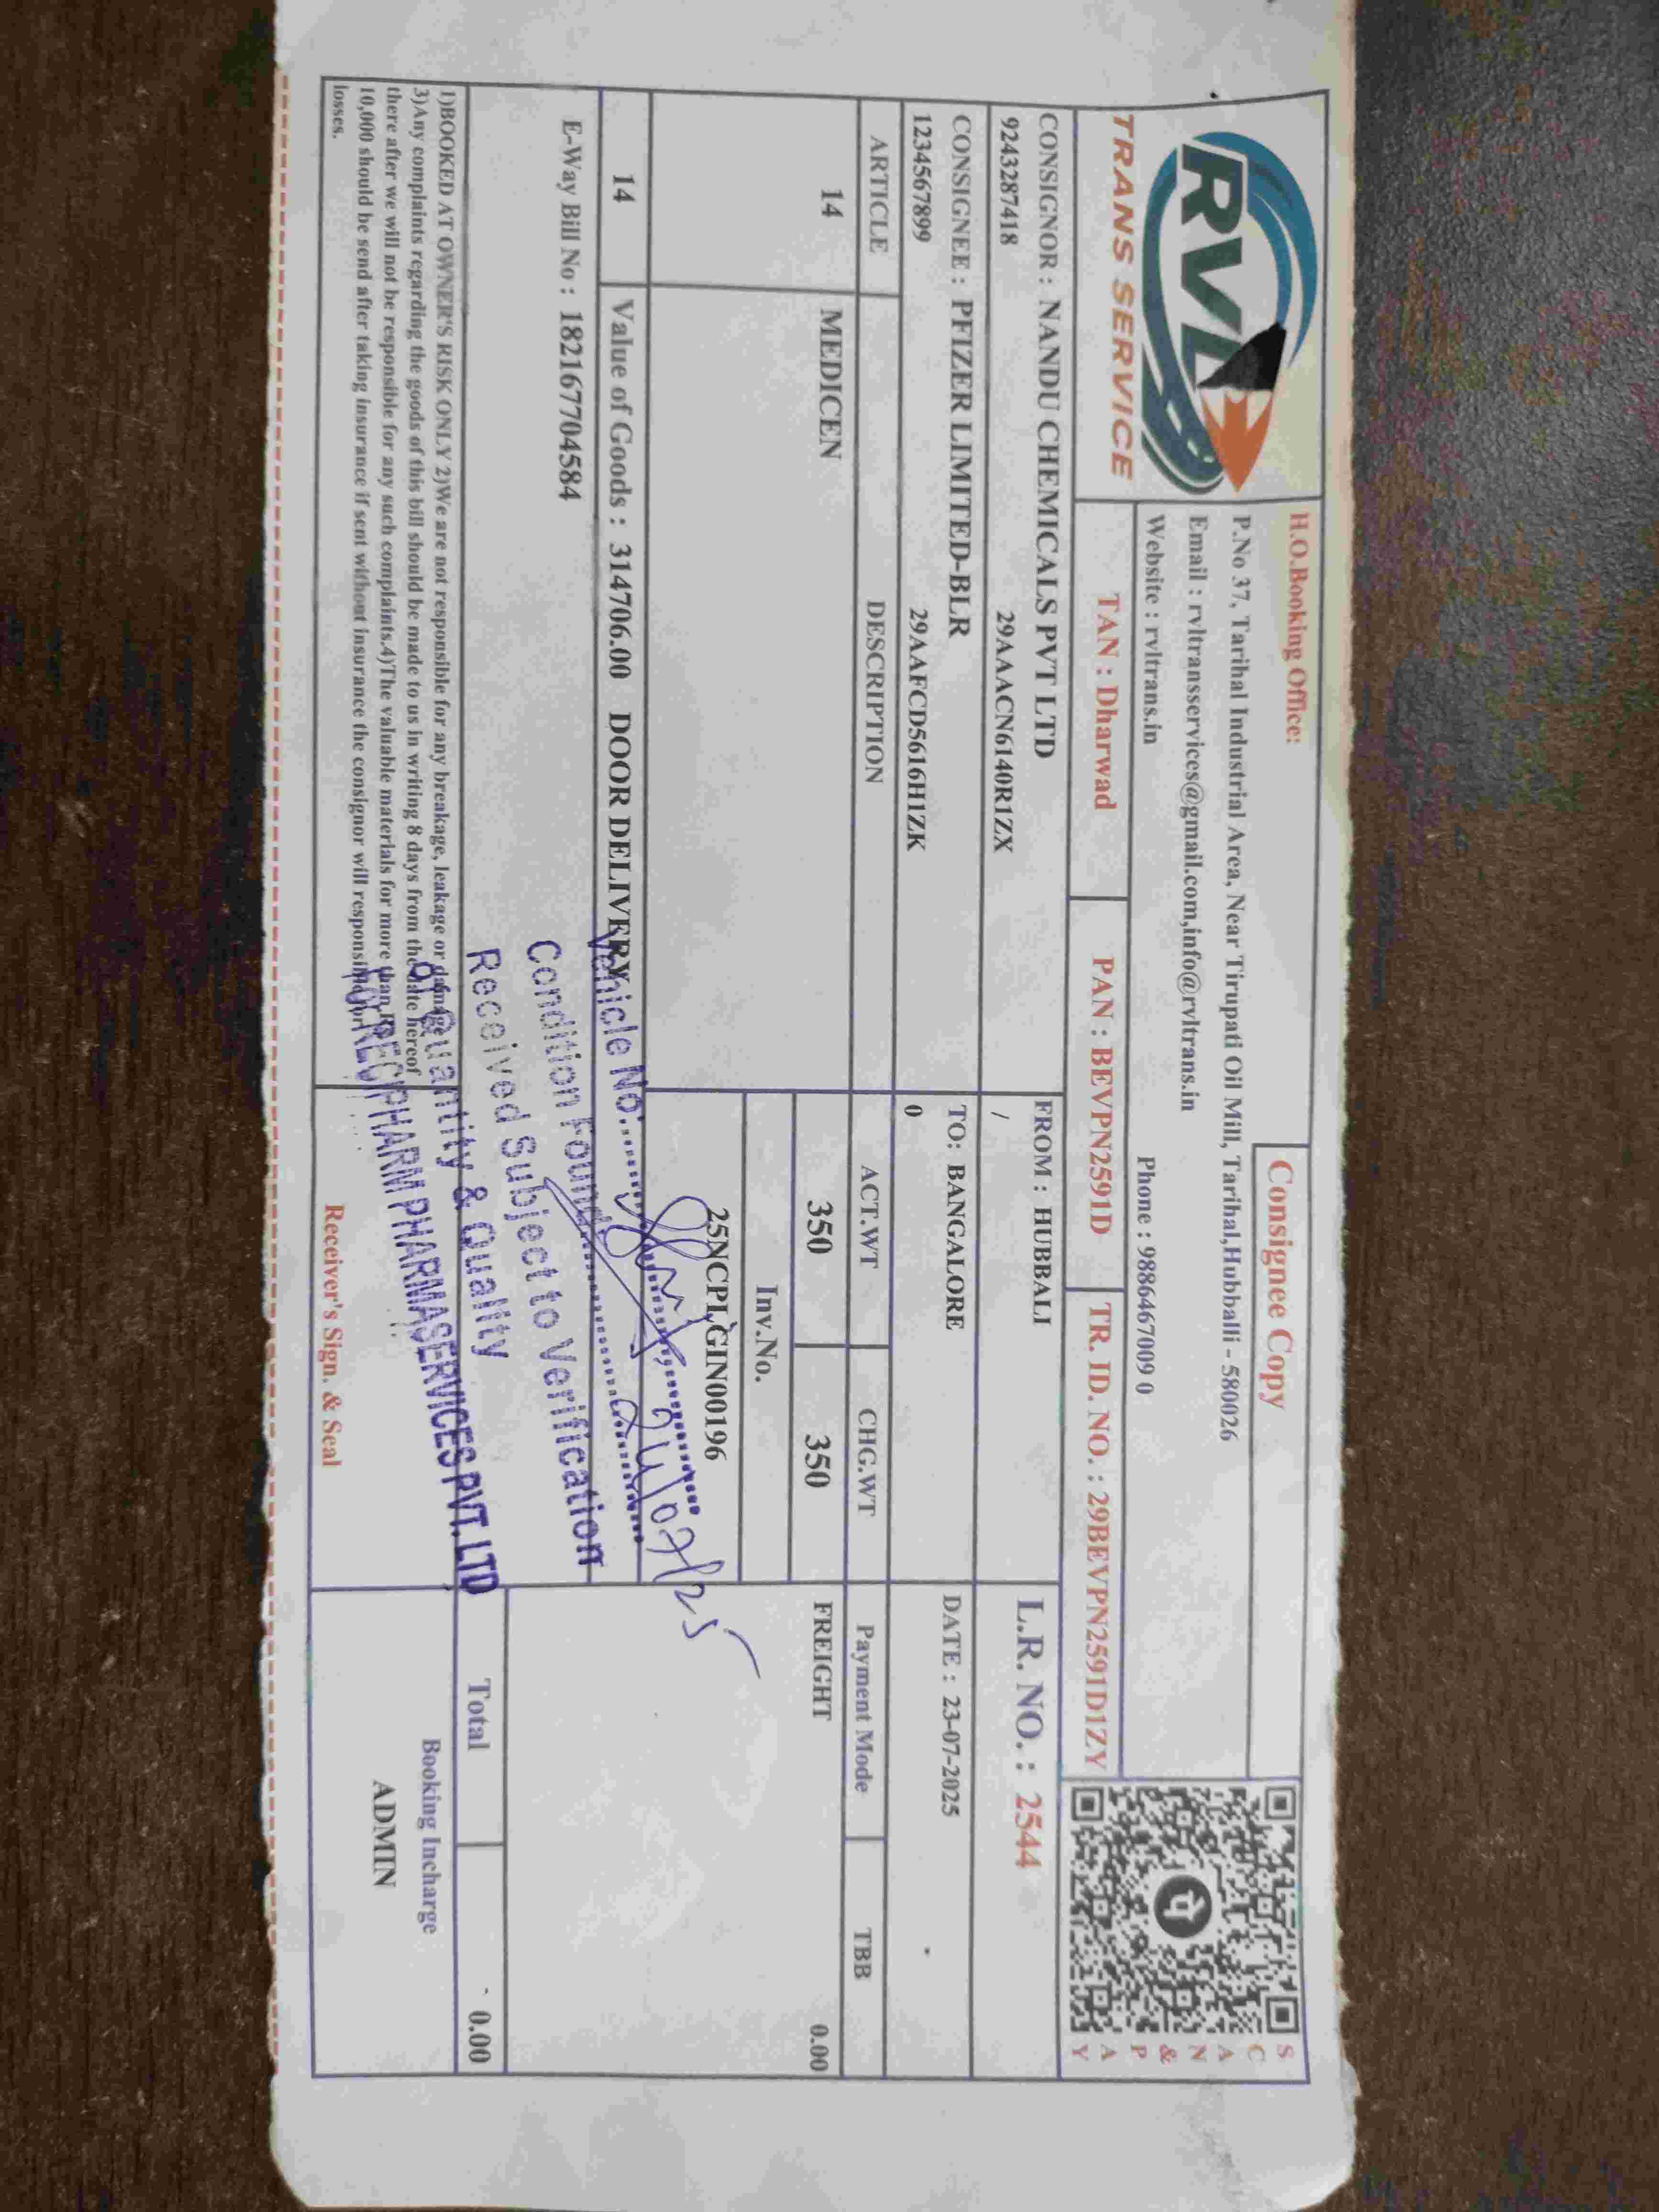 RVL
TRANS SERVICE
H.O.Booking Office:
Consignee Copy
P.No 37, Tarihal Industrial Area, Near Tirupati Oil Mill, Tarihal,Hubballi - 580026
Email : rvltransservices@gmail.com,info@rvltrans.in
Website : rvltrans.in Phone : 9886467009 0
SCAN & PAY
TAN : Dharwad PAN : BEVPN2591D TR. ID. NO. : 29BEVPN2591D1ZY
CONSIGNOR : NANDU CHEMICALS PVT LTD FROM : HUBBALI L.R. NO. : 2544
9243287418 29AAACN6140R1ZX /
CONSIGNEE : PFIZER LIMITED-BLR TO: BANGALORE DATE : 23-07-2025
1234567899 29AAFCD5616H1ZK 0
ARTICLE DESCRIPTION ACT.WT CHG.WT Payment Mode TBB
14 MEDICEN 350 350 FREIGHT 0.00
Inv.No.
25NCPLGIN00196
14 Value of Goods : 314706.00 DOOR DELIVERY
E-Way Bill No : 182167704584
Vehicle No.
24/07/25
Condition Found
Received Subject to Verification
of Quantity & Quality
RECIPHARM PHARMASERVICES PVT. LTD
Total 0.00
1)BOOKED AT OWNER'S RISK ONLY 2)We are not responsible for any breakage, leakage or damage
3)Any complaints regarding the goods of this bill should be made to us in writing 8 days from the date hereof
there after we will not be responsible for any such complaints.4)The valuable materials for more than
10,000 should be send after taking insurance if sent without insurance the consignor will
losses.
Receiver's Sign. & Seal
Booking Incharge
ADMIN